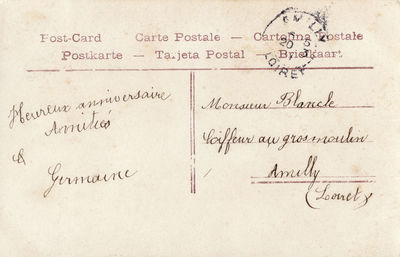 Post-Card Carte Postale – Cartolina Postale
Postkarte – Tarjeta Postal – Briefkaart
AMILLY
20
LOIRET
Heureux anniversaire
Amitiés
&
Germaine
Monsieur Blancle
Coiffeur au gros moulin
Amilly
(Loiret)